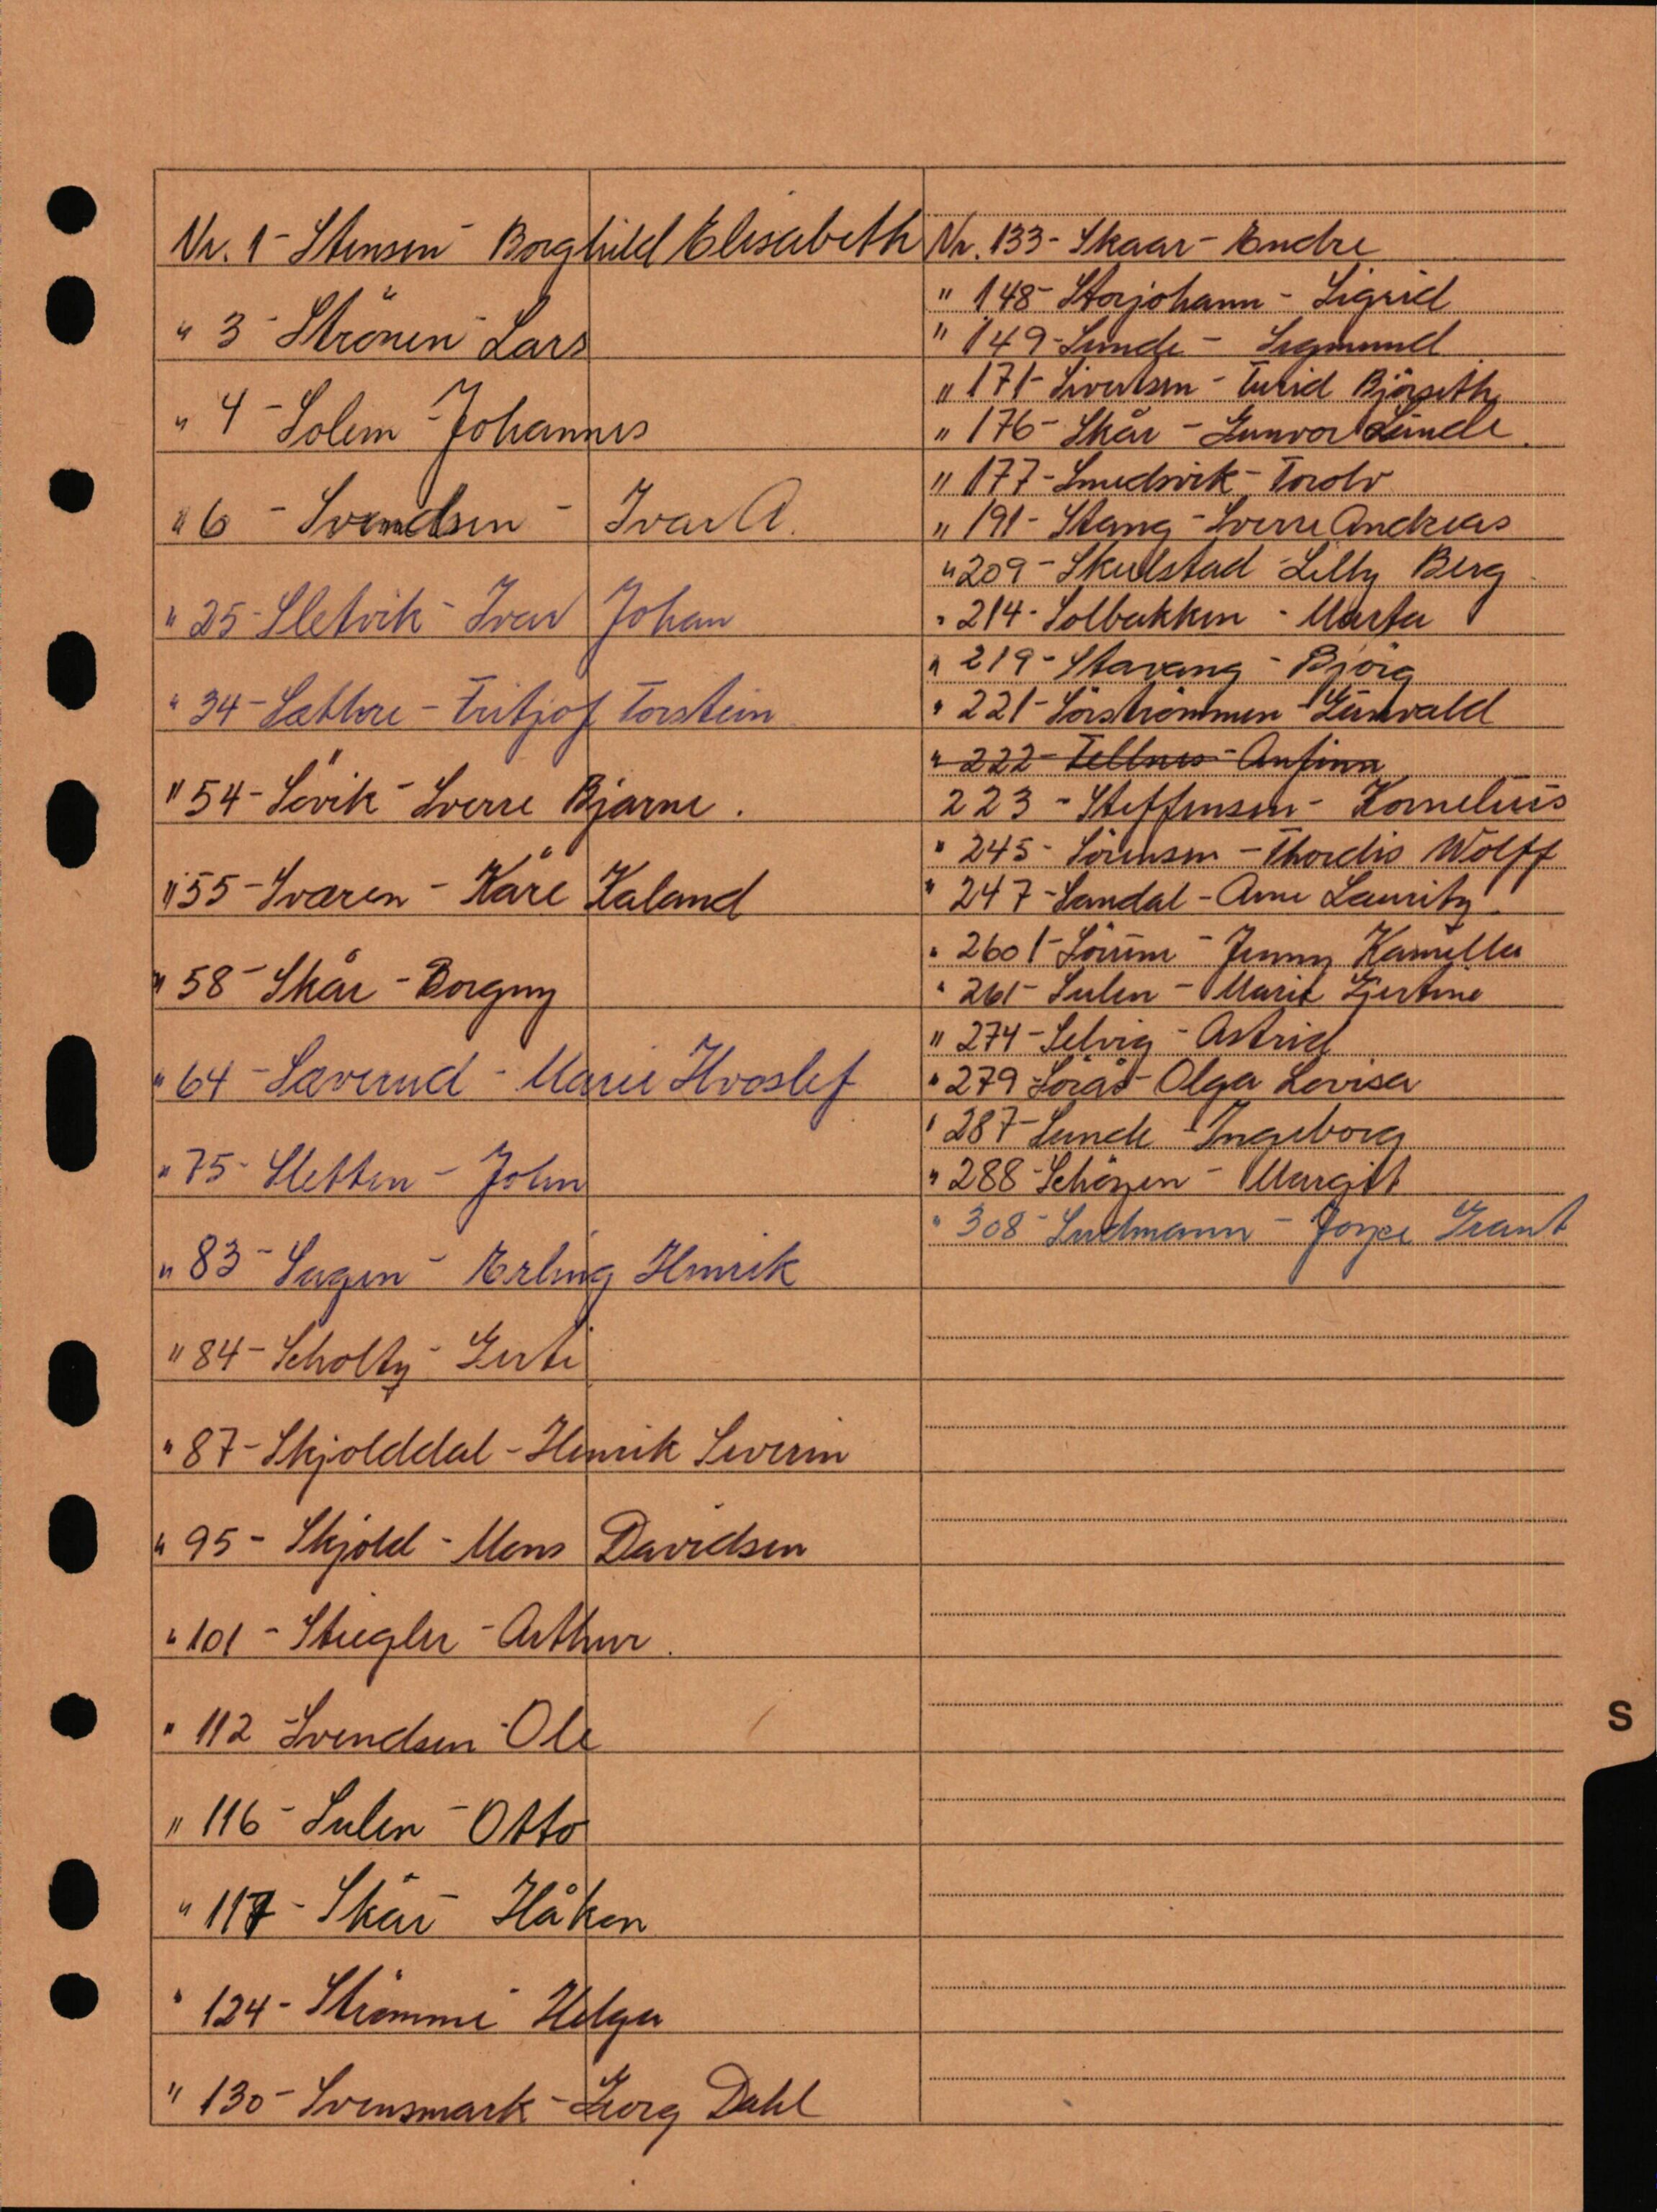 Nr. 1 - Stensen - Borghild Elisabeth
" 3 - Strönen - Lars
" 4 - Solem - Johannes
" 6 - Svendsen - Ivar A.
" 25 - Sletvik - Ivar Johan
" 34 - Sæthre - Fritjof Torstein
" 54 - Sövik - Sverre Bjarne.
" 55 - Sværen - Kåre Kaland
" 58 - Skår - Borgny
" 64 - Sæverud - Marie Hvoslef
" 75 - Sletten - John
" 83 - Sagen - Erling Henrik
" 84 - Scholtz - Gerti
" 87 - Skjolddal - Henrik Severin
" 95 - Skjold - Mons Davidsen
" 101 - Stiegler - Arthur.
" 112 - Svendsen - Ole
" 116 - Sulen - Otto
" 117 - Skår - Håkon
" 124 - Strömme - Helga
" 130 - Svensmark - Georg Dahl
Nr. 133 - Skaar - Endre
" 148 - Storjohann - Sigrid
" 149 - Sunde - Sigmund
" 171 - Sivertsen - Turid Björseth
" 176 - Skår - Gunvor Sunde.
" 177 - Smedsvik - Torolv
" 191 - Stang - Sverre Andreas
" 209 - Skulstad - Lilly Berg
" 214 - Solbakken - Marta
" 219 - Stavang - Björg
" 221 - Sörströnmen - Gunvald
" 222 - Tellnes - Anfinn
223 - Steffensen - Kornelius
" 245 - Sörensen - Thordis Wolff
" 247 - Sandal - Arne Lauritz
" 260 - Sörum - Jenny Kamilla
" 261 - Sulen - Marie Gjertine
" 274 - Selvig - Astrid
" 279 - Sörås - Olga Lovisa
" 287 - Sunde - Ingeborg
" 288 - Schöyen - Margit
" 308 - Sudmann - Joyce Grant
S